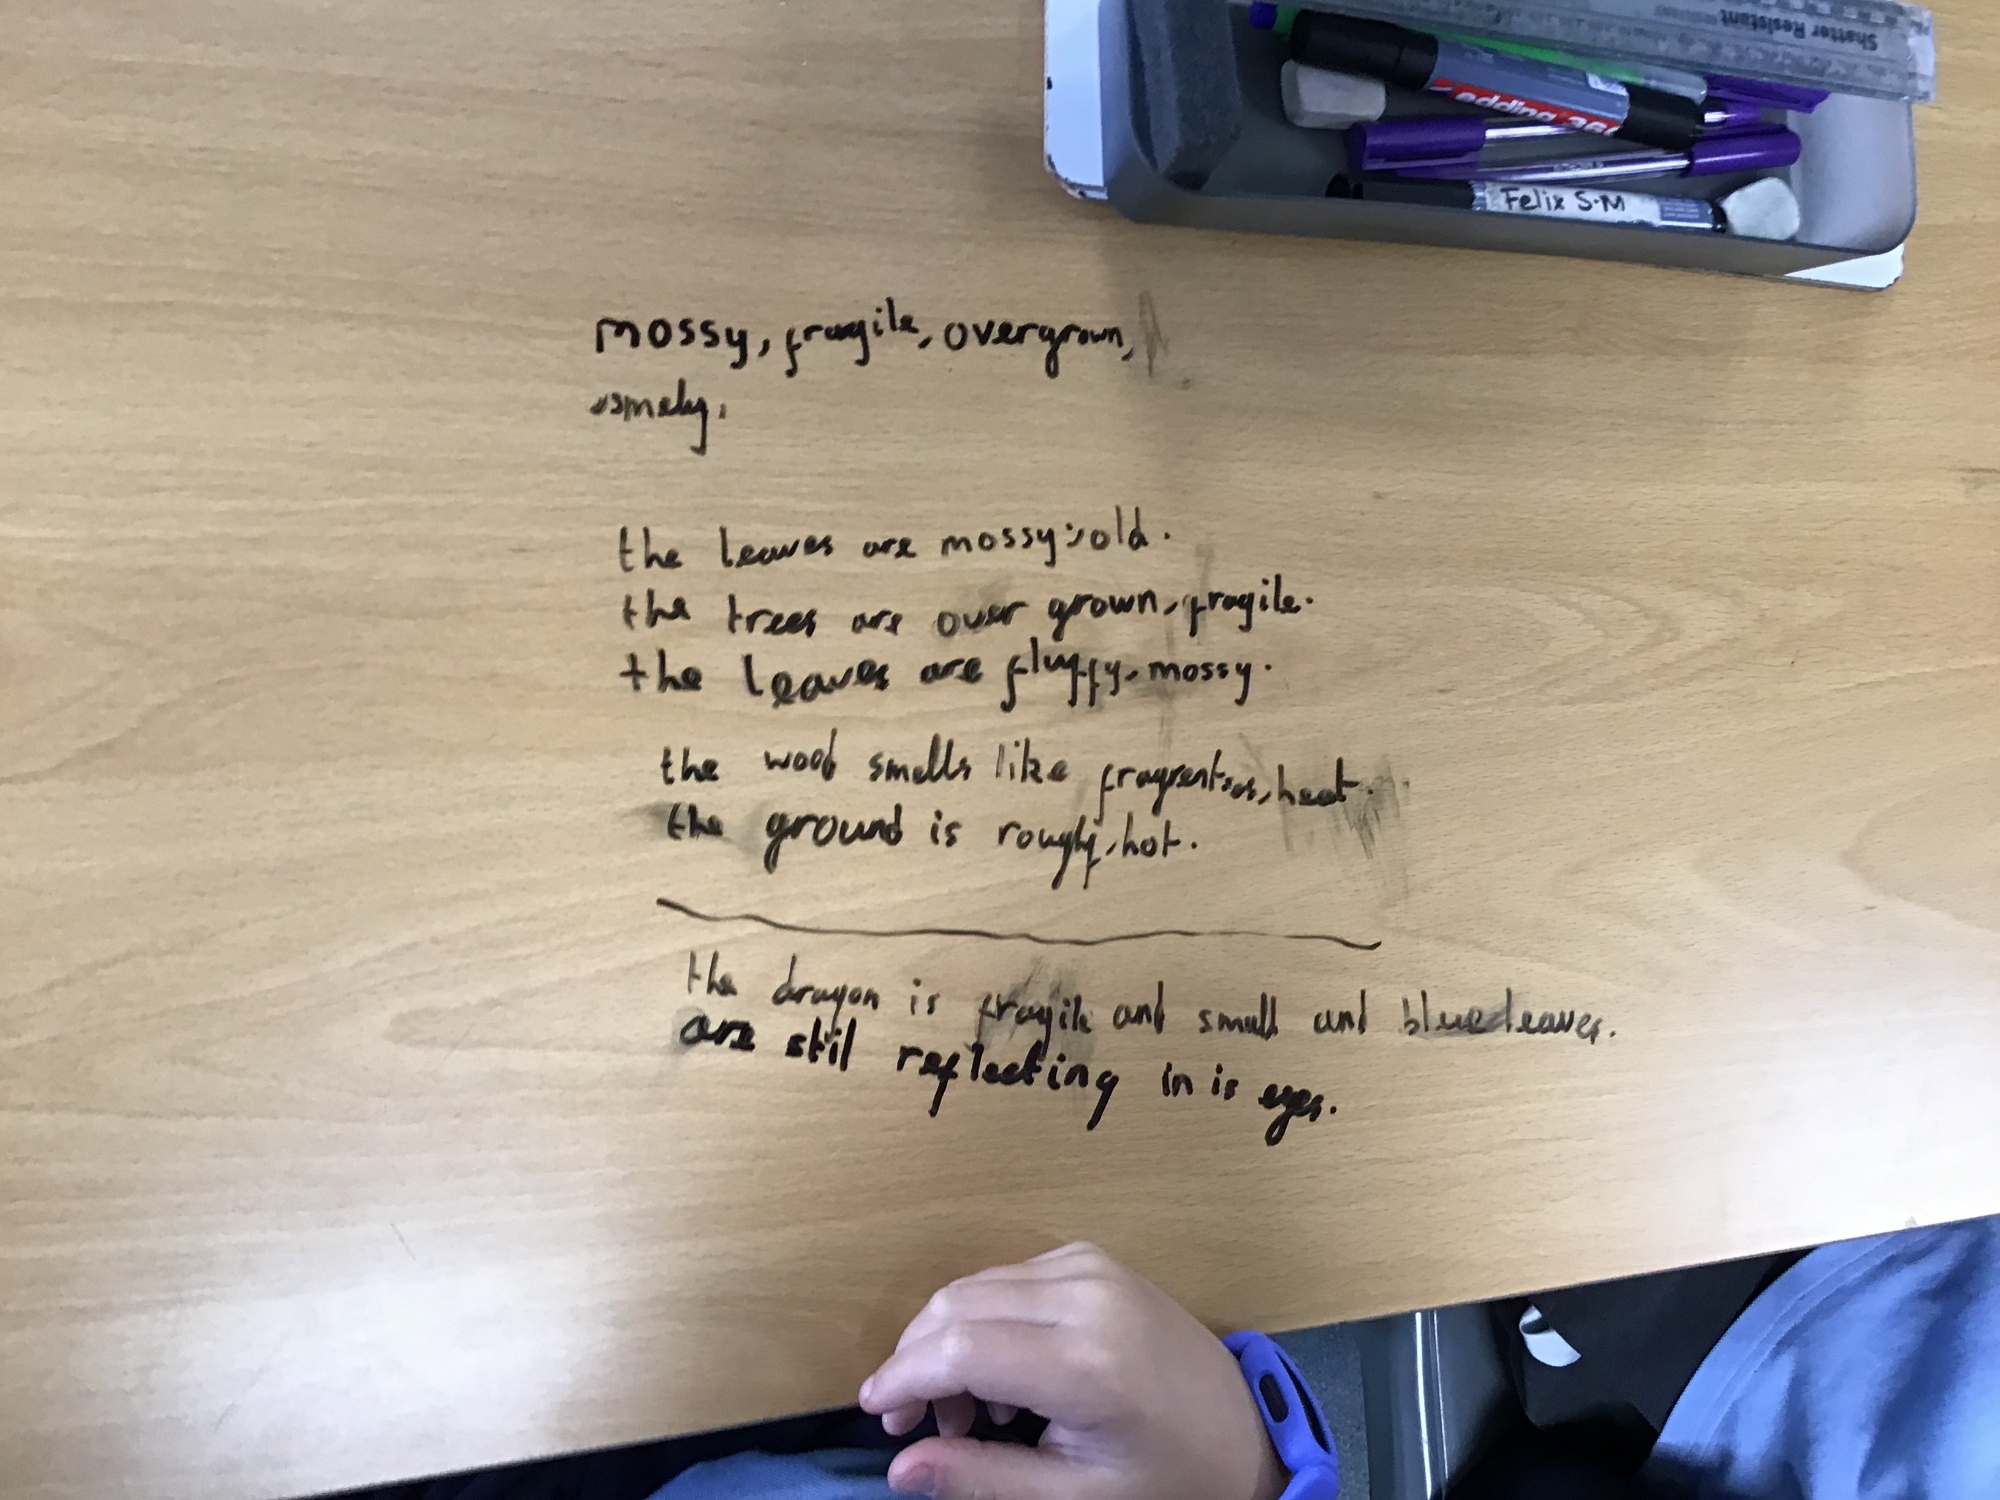 Shatter Resistant
edding 360
Felix S-M
mossy, fragile, overgrown,
smely,
the leaves are mossy, old.
the trees are over grown, fragile.
the leaves are fluffy, mossy.
the wood smells like heat.
the ground is rough, hot.
the dragon is fragile and small and blue leaves.
are stil reflecting in is eyes.